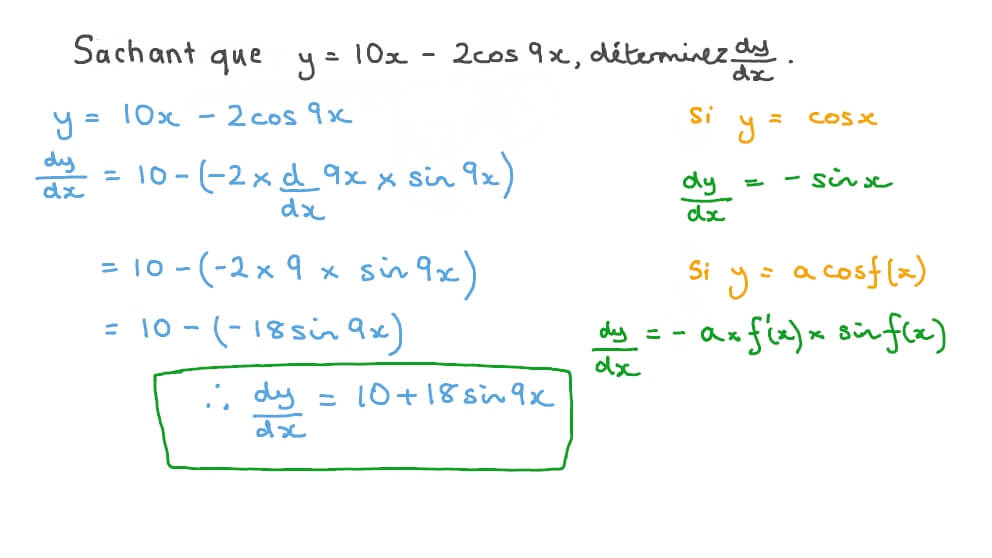 Sachant que y = 10x - 2cos 9x, déterminez dy/dx.
y = 10x - 2cos 9x
dy/dx = 10 - (-2 × d/dx 9x × sin 9x)
= 10 - (-2 × 9 × sin 9x)
= 10 - (-18 sin 9x)
∴ dy/dx = 10 + 18 sin 9x
Si y = cosx
dy/dx = - sin x
Si y = a cosf(x)
dy/dx = - a × f'(x) × sin f(x)